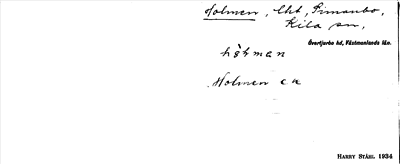 Holmen, Cht, Simanbo,
Kila sn,
Övertjurbo hd, Västmanlands län.
hɔ̀lman
Holmen ek
HARRY STÅHL 1934